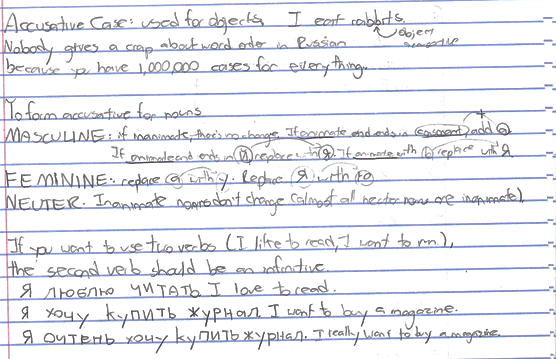 Accusative Case: used for objects I eat rabbits.
object
accusative
Nobody gives a crap about word order in Russian
because you have 1,000,000 cases for everything.
To form accusative for nouns
MASCULINE: if inanimate, there's no change. If animate and ends in consonant, add a
If animate and ends in й replace with я. If animate with ь replace with я
FEMININE: replace a with y. Replace я with ю
NEUTER. Inanimate nouns don't change (almost all neuter nouns are inanimate)
If you want to use two verbs (I like to read, I want to run),
the second verb should be an infinitive.
Я люблю ЧИТАТЬ I love to read.
Я хочу купить журнал. I want to buy a magazine.
Я оитень хочу купить журнал. I really want to buy a magazine.